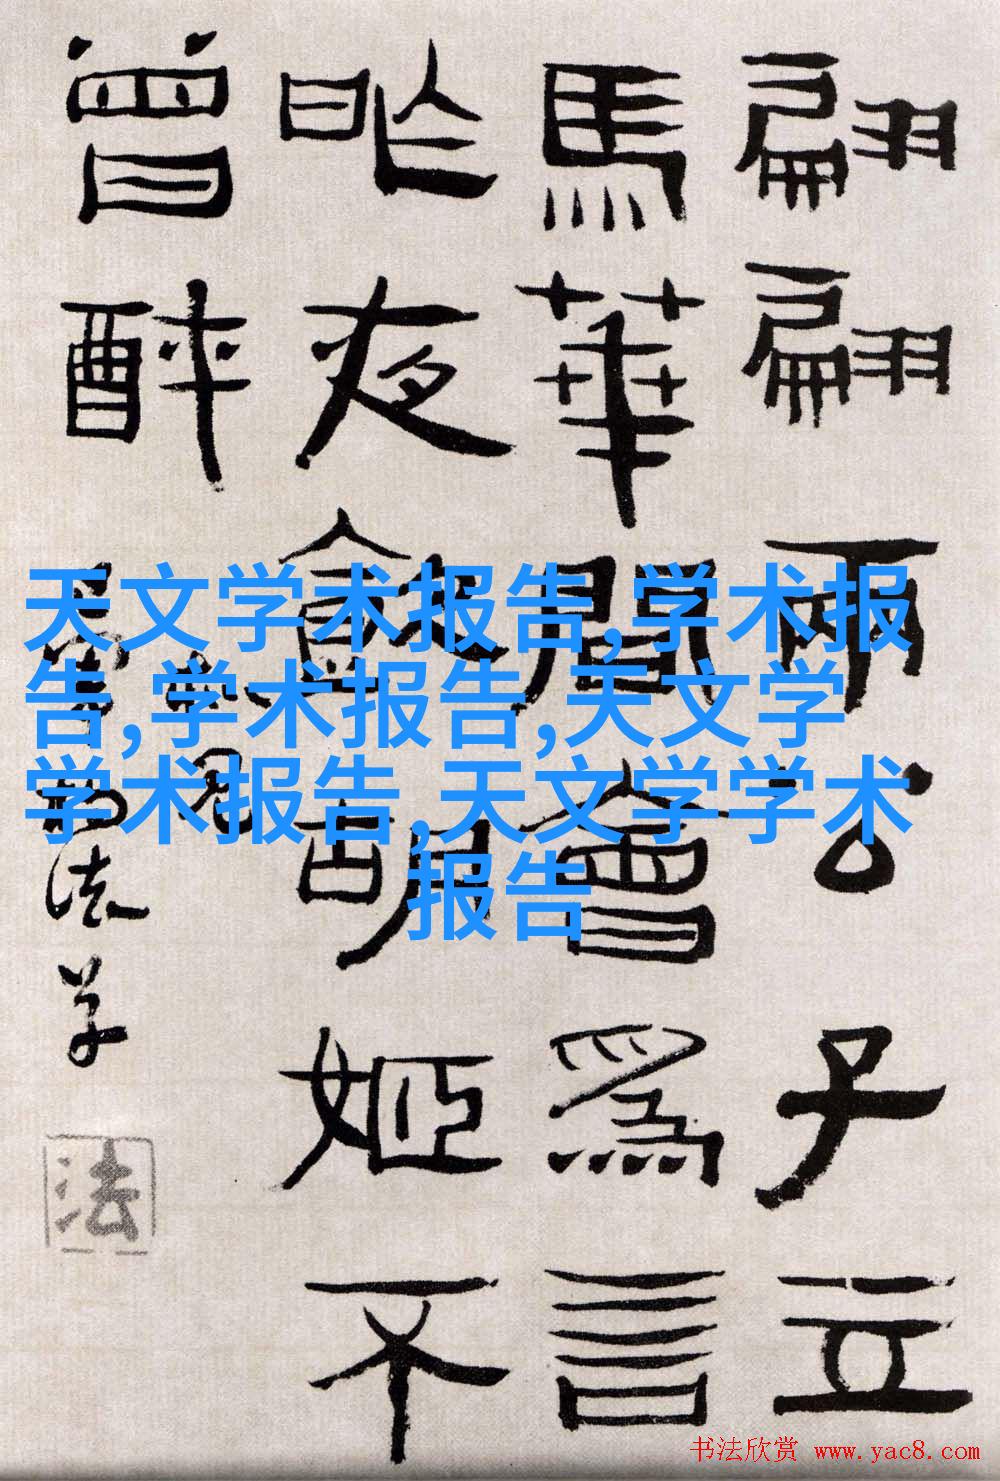 天文学术报告,学术报
告,学术报告,天文学
学术报告,天文学学术
报告
翩翩兩公子立
馬華間會爲言
昨夜胡姬不
曾醉
法
书法欣赏 www.yac8.com